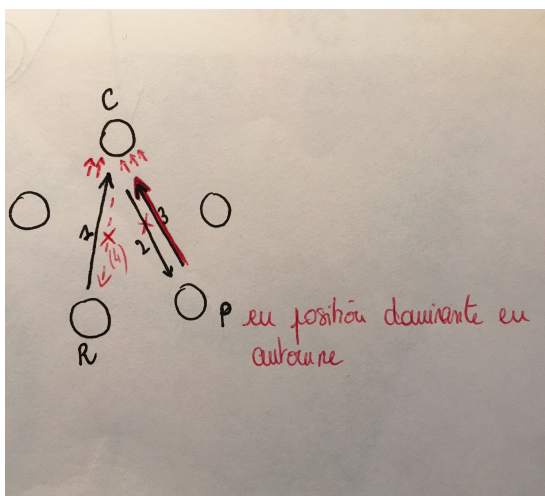 C
1
3
2
(4)
P en position dominante en
automne
R